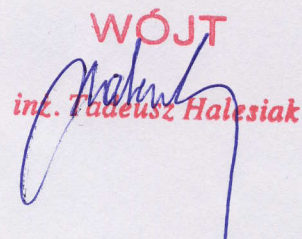 WÓJT
inż. Tadeusz Halesiak